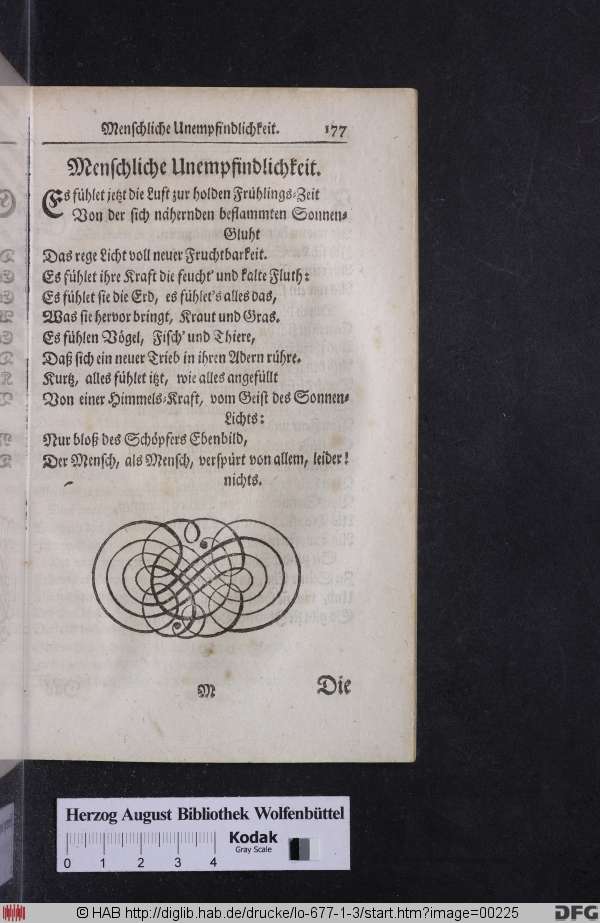 Menschliche Unempfindlichkeit. 177
Menschliche Unempfindlichkeit.
Es fühlet jetzt die Luft zur holden Frühlings-Zeit
Von der sich nähernden beflammten Sonnen-
Gluht
Das rege Licht voll neuer Fruchtbarkeit.
Es fühlet ihre Kraft die feucht' und kalte Fluth:
Es fühlet sie die Erd, es fühlet's alles das,
Was sie hervor bringt, Kraut und Gras.
Es fühlen Vögel, Fisch' und Thiere,
Daß sich ein neuer Trieb in ihren Adern rühre.
Kurtz, alles fühlet itzt, wie alles angefüllt
Von einer Himmels-Kraft, vom Geist des Sonnen-
Lichts:
Nur bloß des Schöpfers Ebenbild,
Der Mensch, als Mensch, verspürt von allem, leider!
nichts.
M Die
Herzog August Bibliothek Wolfenbüttel
Kodak
Gray Scale
0 1 2 3 4
© HAB http://diglib.hab.de/drucke/lo-677-1-3/start.htm?image=00225
DFG